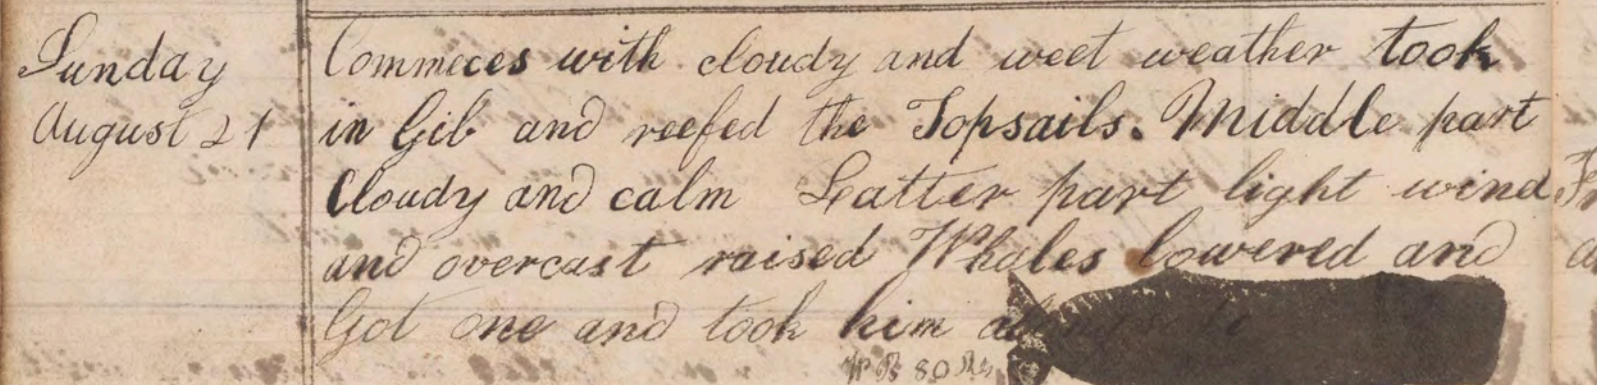 Sunday
August 21
Commeces with cloudy and weet weather took
in Gib and reefed the Topsails. Middle part
Cloudy and calm Latter part light wind
and overcast raised Whales lowered and
Got one and took him alongside
80